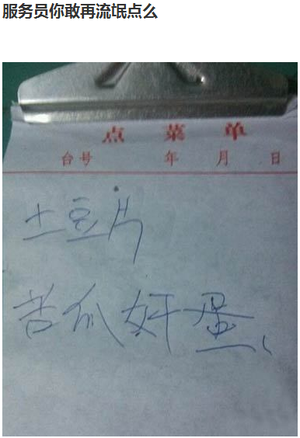 服务员你敢再流氓点么
点菜单
台号 年 月 日
土豆片
苦瓜奸蛋